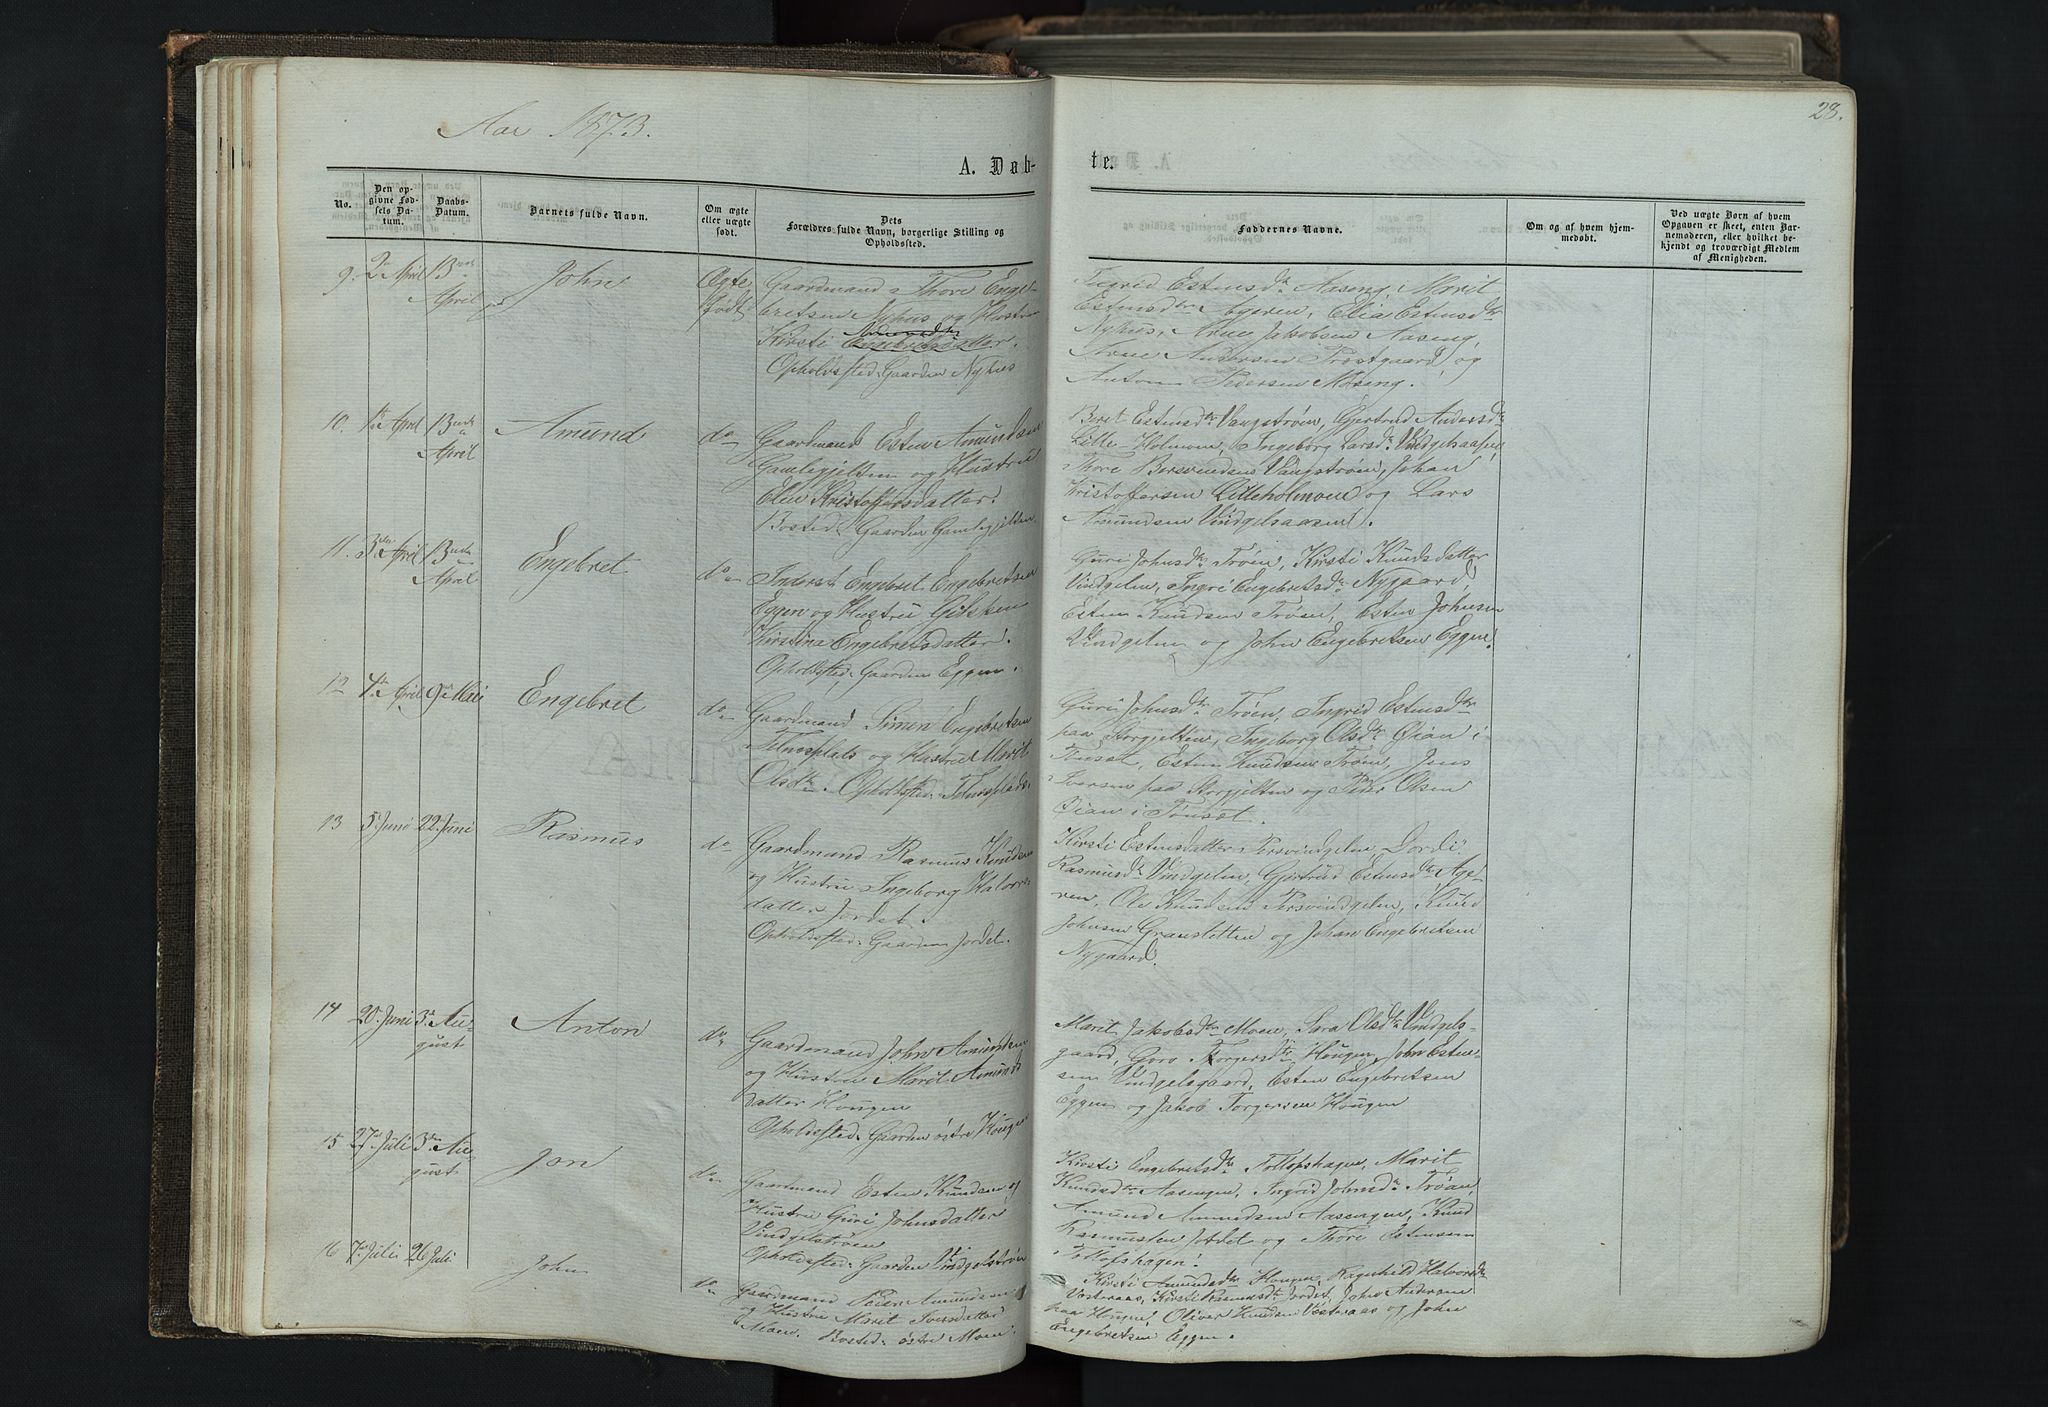 28.
Aar 1873.
A. Døb-
te.
No.
Den op-
givne Fød-
sels Da-
tum.
Daabs-
Datum.
Barnets fulde Navn.
Om ægte
eller uægte
født.
Dets
Forældres fulde Navn, borgerlige Stilling og
Opholdsted.
Faddernes Navne.
Om og af hvem hjem-
medøbt.
Ved uægte Børn af hvem
Opgaven er skeet, enten Bar-
nemoderen, eller hvilket be-
kjendt og troværdigt Medlem
af Menigheden.
9.
April
April
John
Ægte
født
Gaardmand Thore Enge-
bretsen Nyhus og Hustru
Kirsti Engebretsdatter.
Opholdsted: Gaarden Nyhus
Ingrid Estensdtr Aaseng, Marit
Estensdtr Aageren, Elia Estensdtr
Nyhus, Arne Jakobsen Aaseng,
Arne Andersen Præstgaard og
Anton Pedersen Moseng.
10.
April
April
Amund
do
Gaardmand Esten Amundsen
Gamlegjelten og Hustru
Elen Kristoffersdatter.
Bosted: Gaarden Gamlegjelten
Beret Estensdtr Vangstrøen, Gjertrud Andersdtr
Lille-Holmen, Ingeborg Larsdtr Vindgelsaasen,
Thore Vangstrøen, Johan
Kristoffersen Lilleholmen og Lars
Amundsen Vindgelsaasen.
11.
3die April
April
Engebret
do
Inderst Engebret Engebretsen
Eggen og Hustru Gilsken
Kirstina Engebretsdatter.
Opholdsted: Gaarden Eggen.
Guri Johnsdtr Trøen, Kirsti Knudsdatter
Vindgelen, Ingri Engebretsdtr Nygaard,
Esten Knudsen Trøen, Esten Johnsen
Vindgelen og John Engebretsen Eggen.
12
April 9de Mai
Engebret
do
Gaardmand Simen Engebretsen
Telnesplads og Hustru Marit
Olsdtr. Opholdsted: Telnesplads.
Guri Johnsdtr Trøen, Ingrid Estensdtr
paa Storgjelten, Ingeborg Olsdtr Øian i
Tønset, Esten Knudsen Trøen, Jens
Iversen paa Storgjelten og Peder Olsen
Øian i Tønset.
13
5 Juni
22 Juni
Rasmus
do
Gaardmand Rasmus Knudsen
og Hustru Ingeborg Halvors-
datter Jordet.
Opholdsted: Gaarden Jordet.
Kirsti Estensdatter Persvindgelen, Dordi
Rasmusdtr Vindgelen, Gjertrud Estensdtr Age-
ren, Ole Knudsen Persvindgelen, Knud
Johnsen Granstetten og Johan Engebretsen
Nygaard.
14
20 Juni
3die Au-
gust
Anton
do
Gaardmand John Amundsen
og Hustru Marit Amunds-
datter Hougen
Opholdsted: Gaarden østre Hougen
Marit Jakobsdtr Moen, Sara Olsdtr Vindgels-
gaard, Goro Torgersdtr Hougen, John Esten-
sen Vindgelsgaard, Esten Engebretsen
Eggen og Jakob Torgersen Hougen
15
27 Juli
3die Au-
gust
Jon
do
Gaardmand Esten Knudsen og
Hustru Guri Johnsdatter
Vindgelstrøen
Opholdsted: Gaarden Vindgelstrøen
Kirsti Engebretsdtr Tollofshagen, Marit
Knudsdtr Aasengen, Ingrid Johnsdtr Trøen,
Amund Amundsen Aasengen, Knud
Rasmussen Jordet og Thore Estensen
Tollofshagen.
16
7 Juli
26 Juli
John
do
Gaardmand Peder Amundsen
og Hustru Marit Iversdatter
Moen. Bosted: østre Moen.
Kirsti Amundsdtr Hougen, Ragnhild Halvorsdtr
Vesteraas, Kirsti Rasmusdtr Jordet, John Andersen
paa Hougen, Oliver Knudsen Vesteraas og John
Engebretsen Eggen.